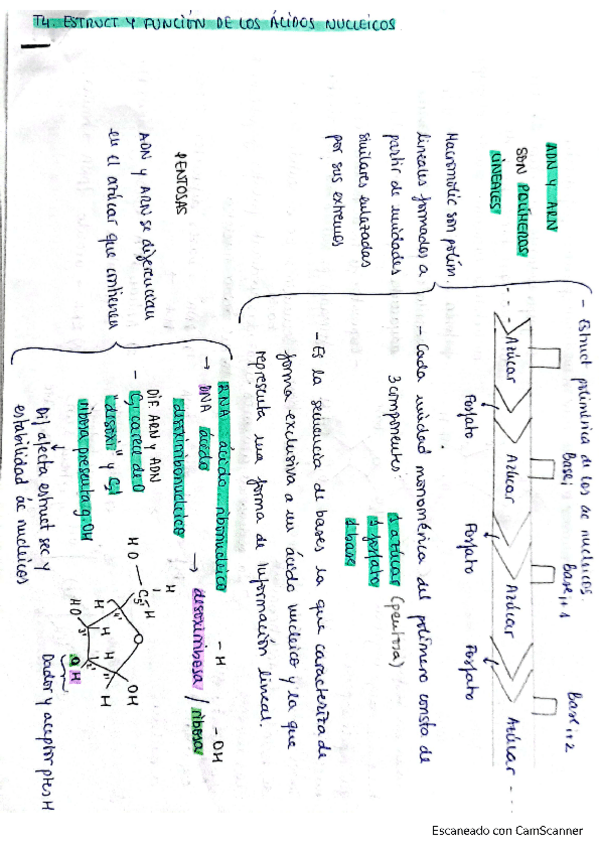 T4. ESTRUCT Y FUNCIÓN DE LOS ÁCIDOS NUCLEICOS
ADN Y ARN
SON POLÍMEROS
LINEALES
Macromolec son polím.
lineales formados a
partir de unidades
similares enlazadas
por sus extremos
- Estruct polimérica de los ac nucleicos.
Base i
Base i+1
Base i+2
Azúcar
Azúcar
Azúcar
Azúcar
Fosfato
Fosfato
Fosfato
- Cada unidad monomérica del polímero consta de
3 componentes:
1 azúcar (pentosa)
1 fosfato
1 base
- Es la secuencia de bases la que caracteriza de
forma exclusiva a un ácido nucleico y la que
representa una forma de información lineal.
PENTOSAS
ADN y ARN se diferencian
en el azúcar que contienen
RNA ácido ribonucleico
→ DNA ácido
desoxirribonucleico
→ desoxirribosa / ribosa
- H
- OH
DIF. ARN y ADN
- C2' carece de O
"desoxi" y C2'
ribosa presenta g. OH
Dif afecta estruct sec y
estabilidad ác nucleicos
HO
C5'
H
H
O
OH
4'
1'
H
H
H
H
3'
2'
HO
OH
Dador y aceptor ptes H
Escaneado con CamScanner